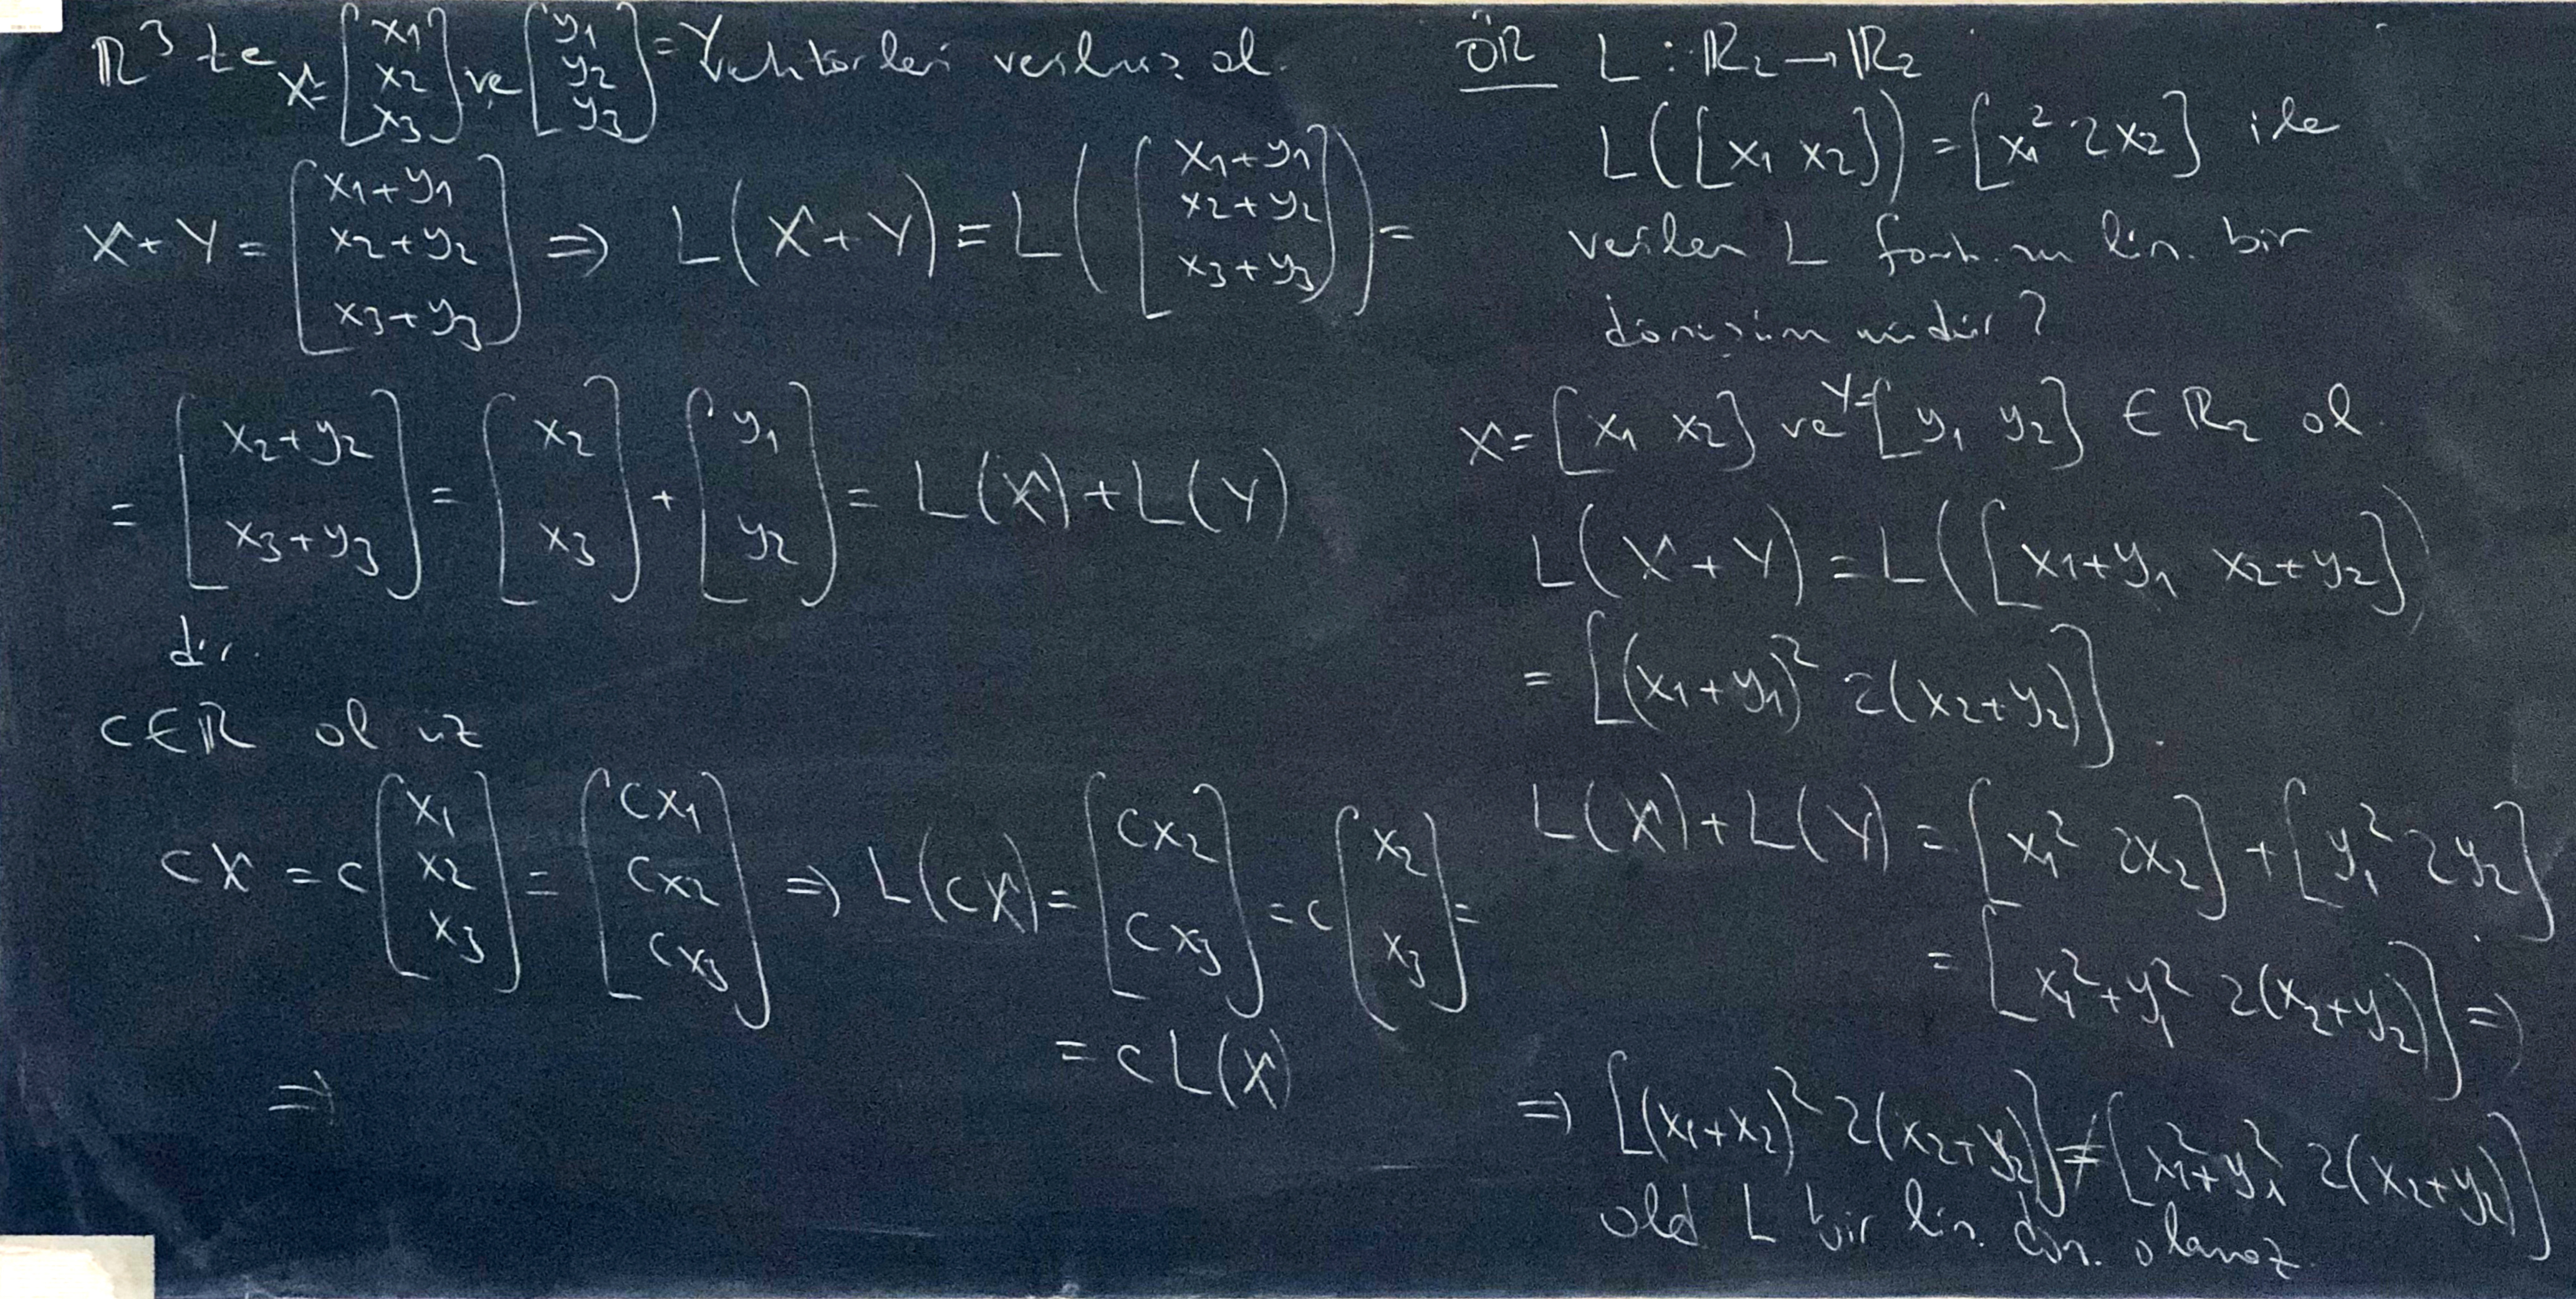 ℝ³ te X=[x1 x2 x3] ve [y1 y2 y3]=Y vektörleri verilmiş ol.
X+Y=[x1+y1 x2+y2 x3+y3] ⇒ L(X+Y)=L([x1+y1 x2+y2 x3+y3])=
=[x2+y2 x3+y3]=[x2 x3]+[y1 y2]=L(X)+L(Y)
dir.
c∈ℝ ol üz
cX=c[x1 x2 x3]=[cx1 cx2 cx3] ⇒ L(cX)=[cx2 cx3]=c[x2 x3]=
=cL(X)
⇒
ÖR L:ℝ₂→ℝ₂
L([x1 x2])=[x1² 2x2] ile
verilen L fonk.nu lin. bir
dönüşüm müdür?
X=[x1 x2] ve Y=[y1 y2] ∈ ℝ₂ ol.
L(X+Y)=L([x1+y1 x2+y2])
=[(x1+y1)² 2(x2+y2)].
L(X)+L(Y)=[x1² 2x2]+[y1² 2y2]
=[x1²+y1² 2(x2+y2)] ⇒
⇒ [(x1+x2)² 2(x2+y2)]≠[x1²+y1² 2(x2+y2)]
old L bir lin. dön. olamaz.